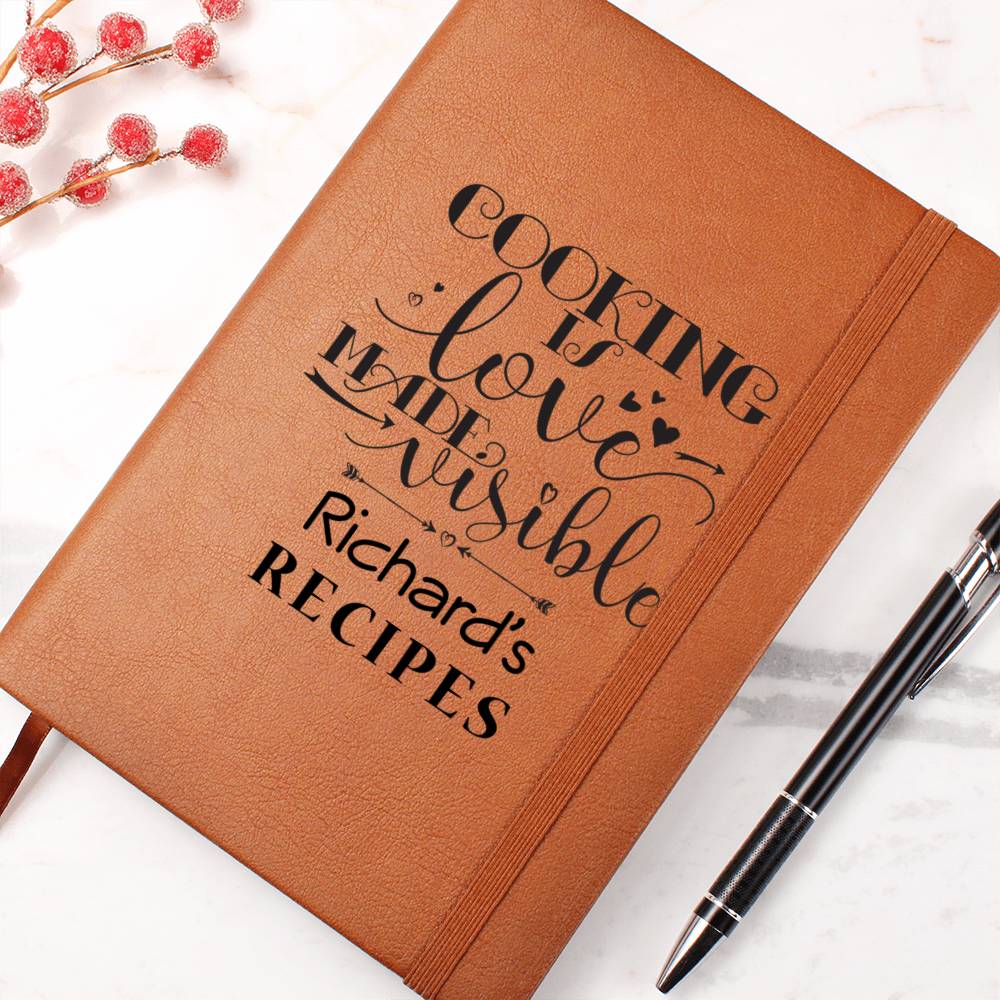 COOKING
IS
love
MADE
visible
Richard's
RECIPES